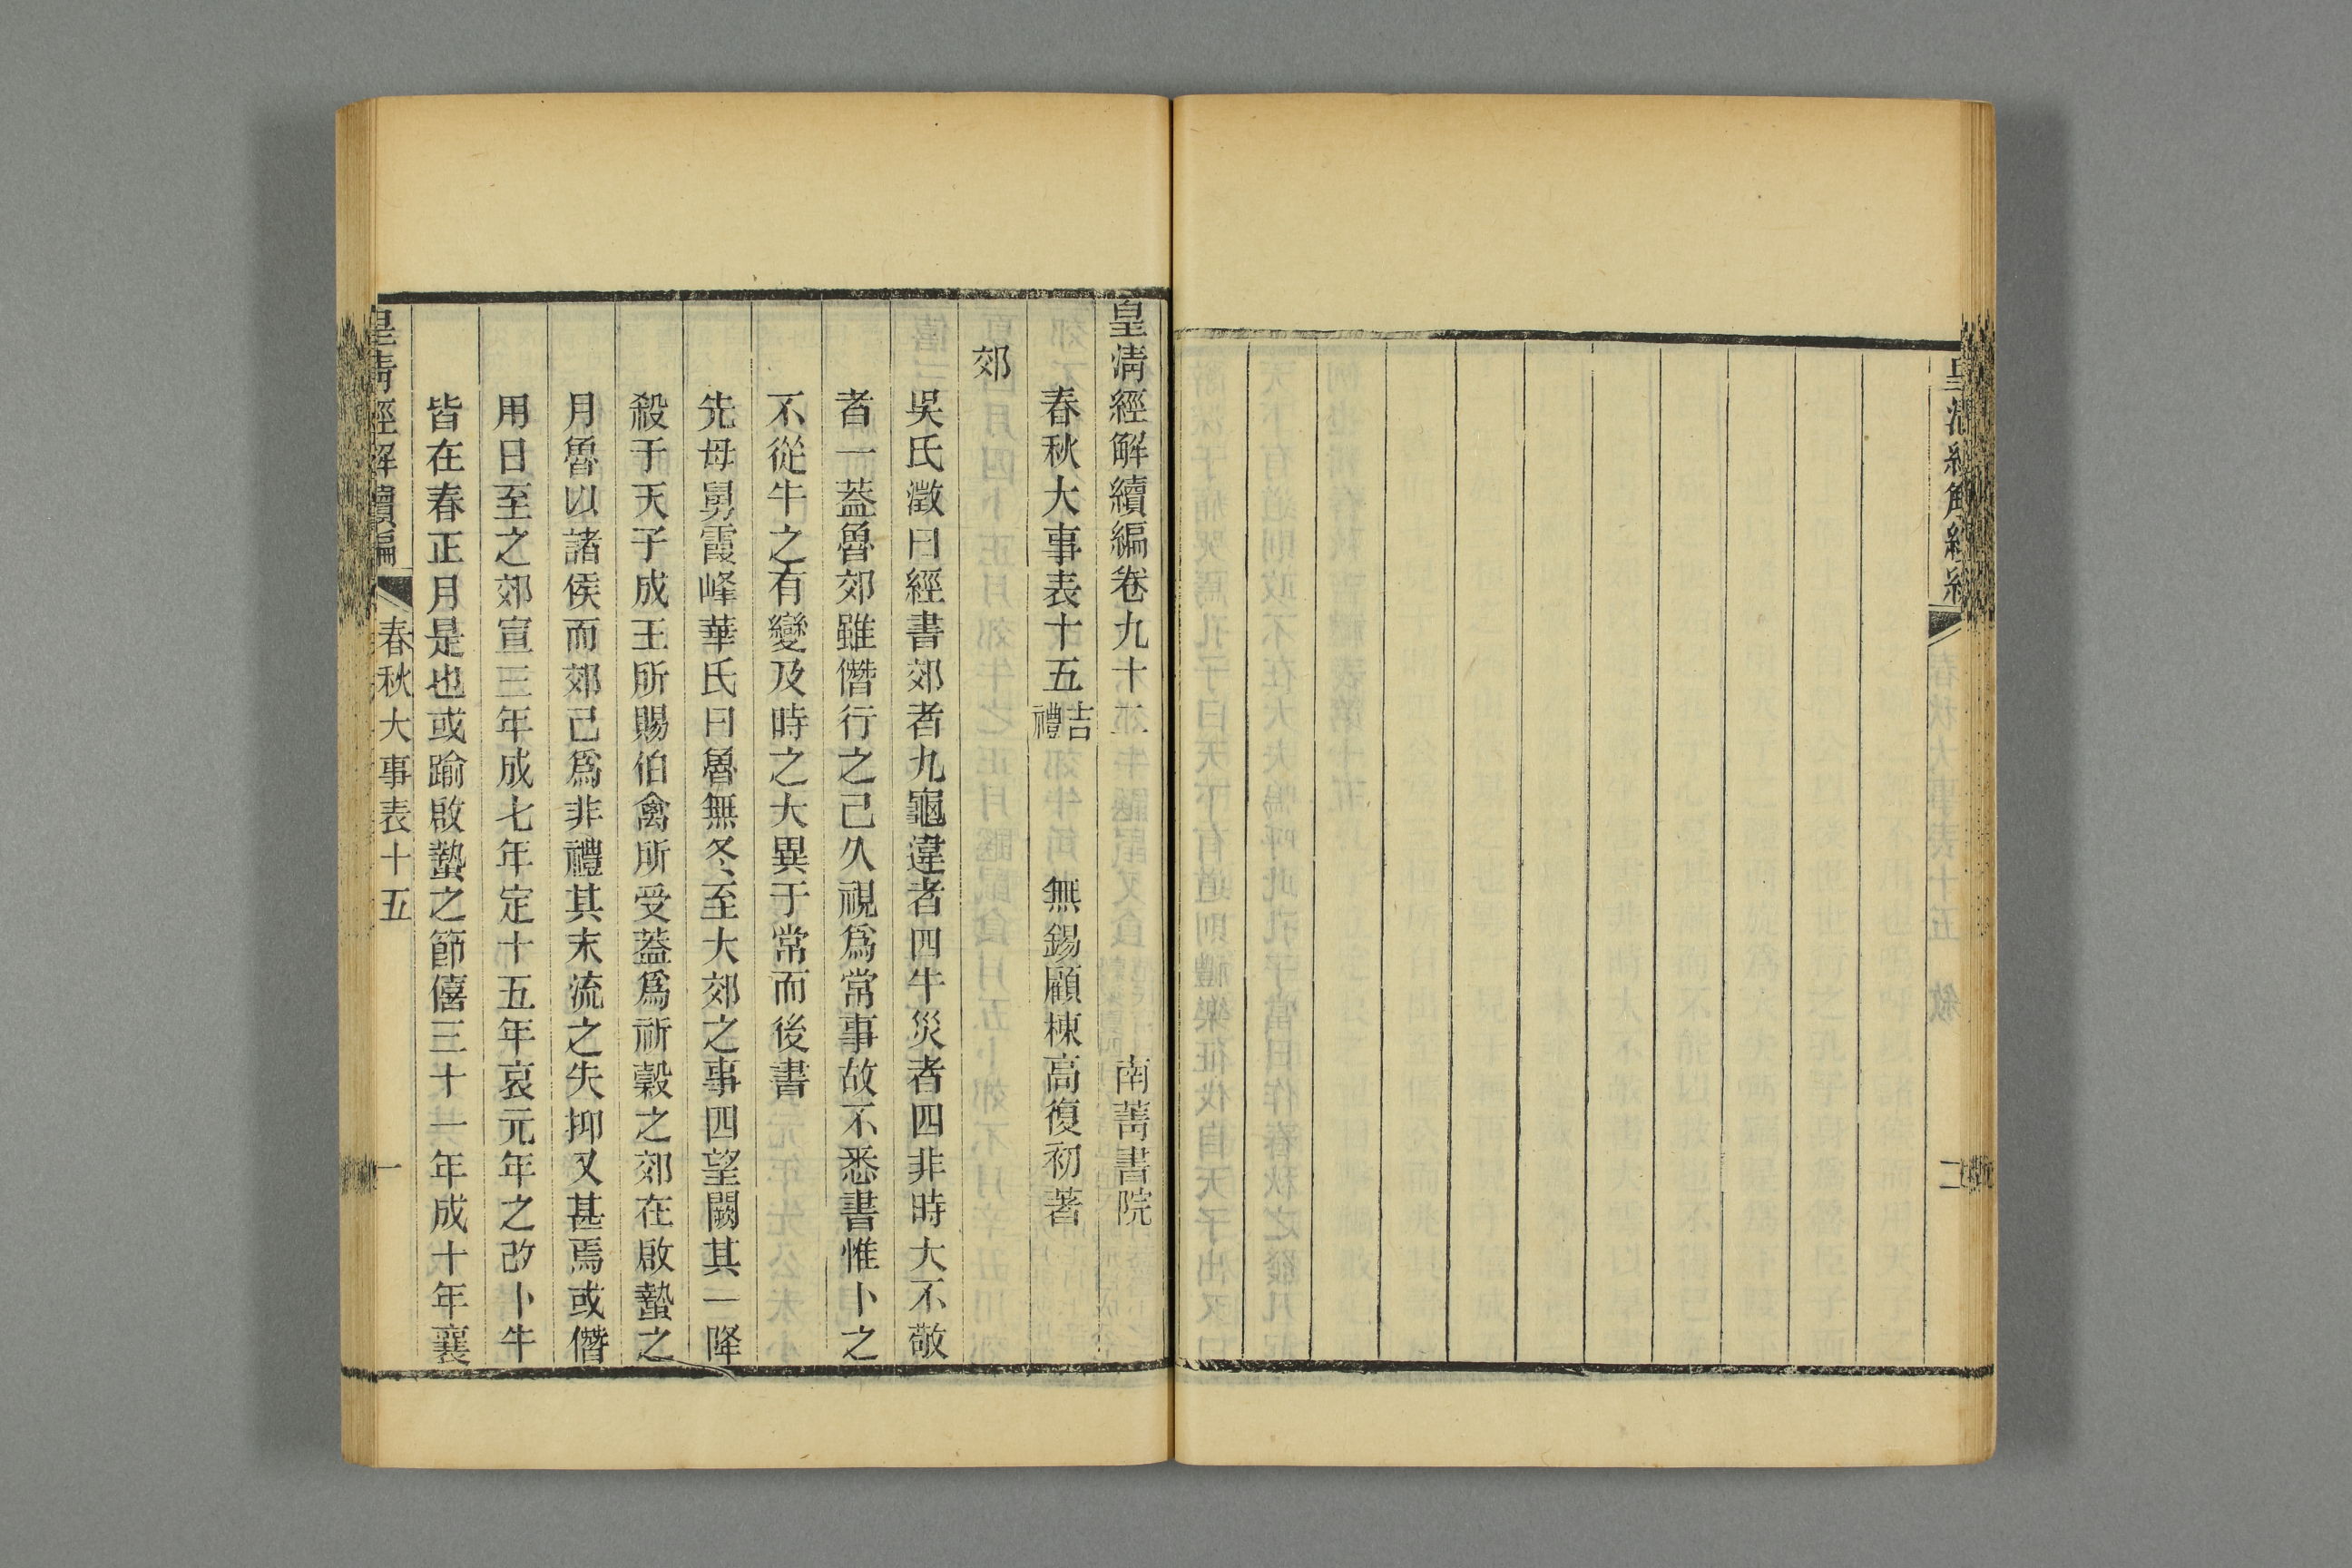 皇清經解續編卷九十二 南菁書院
春秋大事表十五 吉禮 無錫顧棟高復初著
郊
吳氏澂曰經書郊者九龜違者四牛災者四非時大不敬
者一蓋魯郊雖僭行之已久視為常事故不悉書惟卜之
不從牛之有變及時之大異于常而後書
先母舅霞峰華氏曰魯無冬至大郊之事四望闕其一降
殺于天子成王所賜伯禽所受蓋爲祈穀之郊在啟蟄之
月魯以諸侯而郊已爲非禮其末流之失抑又甚焉或僭
用日至之郊宣三年成七年定十五年哀元年之改卜牛
皆在春正月是也或踰啟蟄之節僖三十一年成十年襄
皇清經解續編 春秋大事表十五 一